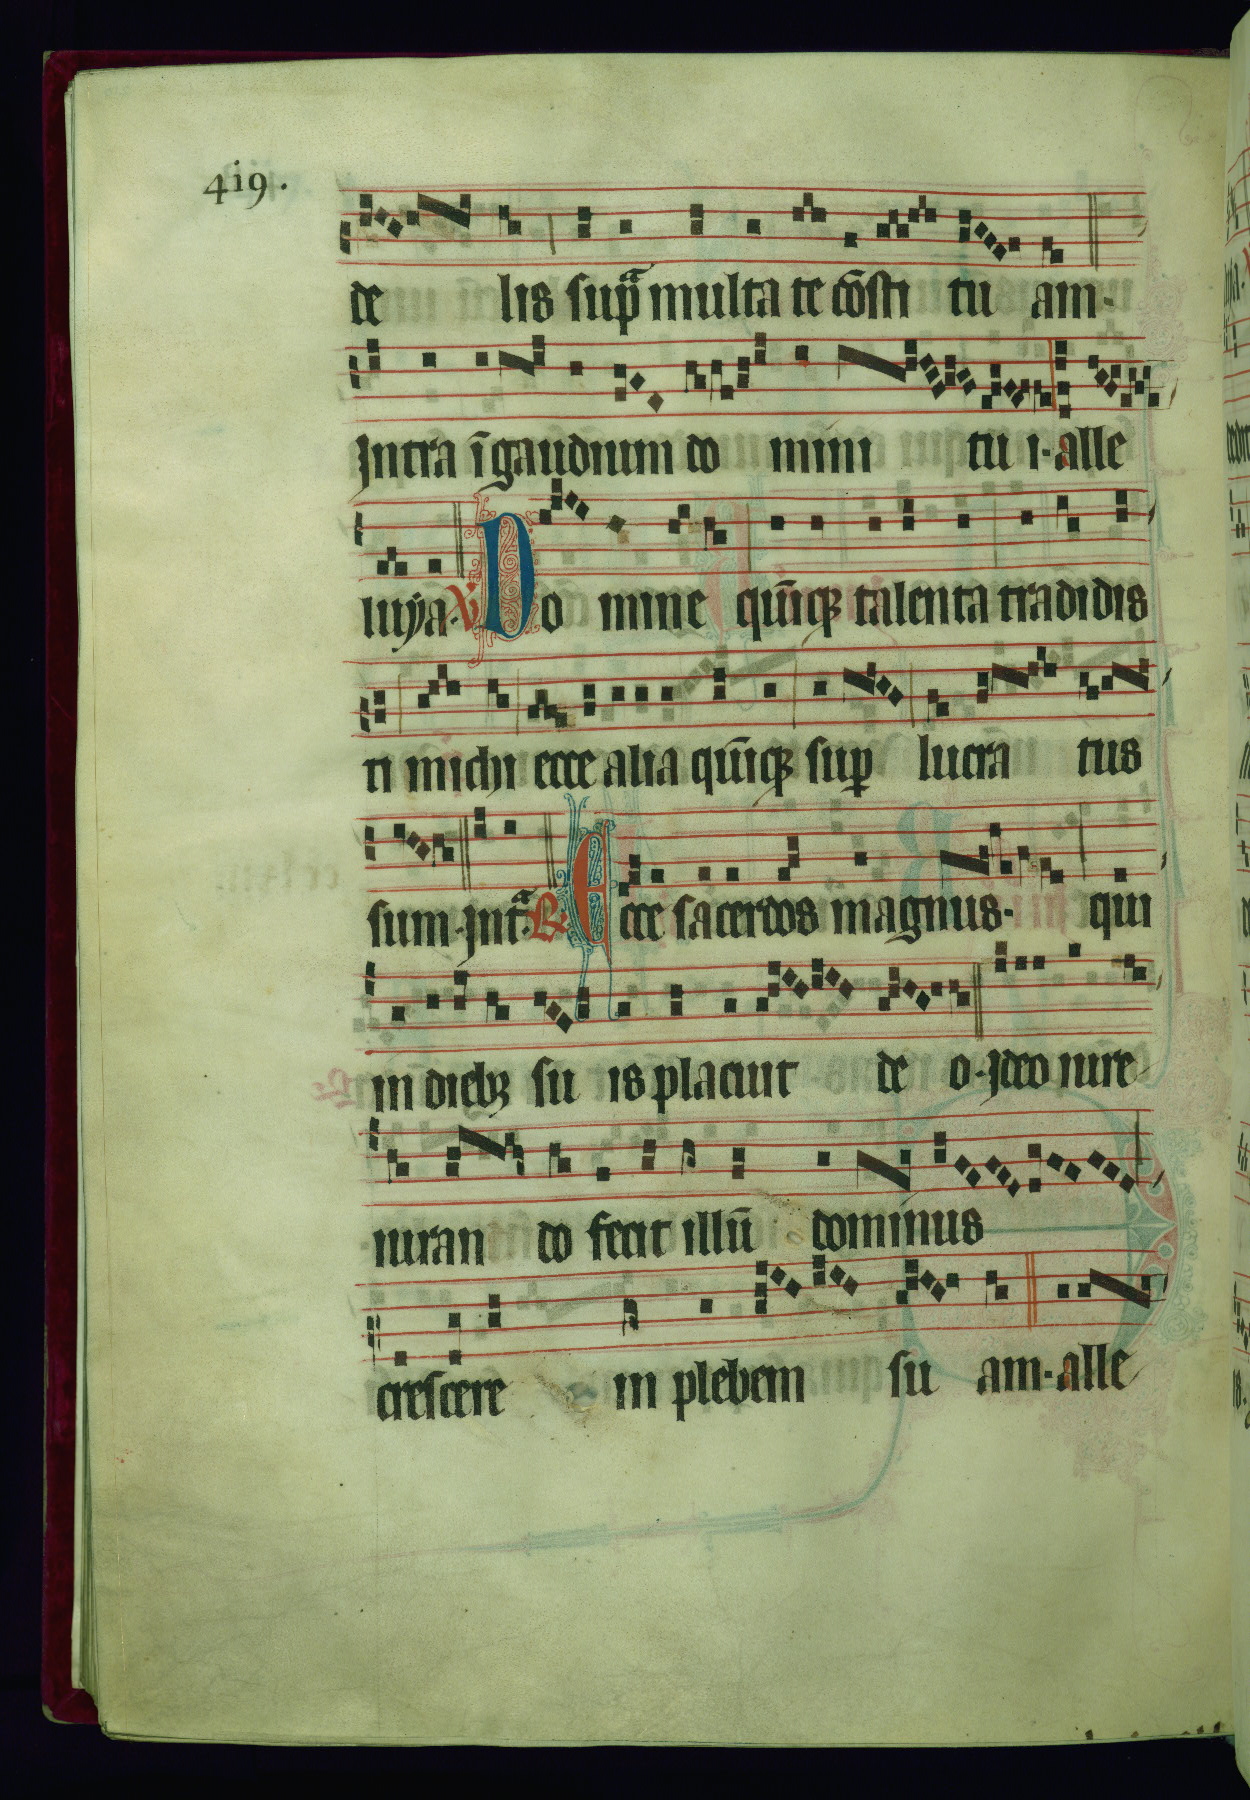 419.
de lis sup̃ multa te cõsti tu am·
Jntra ĩ gaudium do mini tu i· alle
luÿa. V Do mine quĩcqꝫ talenta tradidis
ti michi ecce alia quĩcqꝫ suꝑ lucra tus
sum· Jntᵃ. R Ecce sacerdos magnus· qui
in diebꝫ su is placuit de o· Jdeo iure
iuran do fecit illũ dominus
crescere in plebem su am· alle